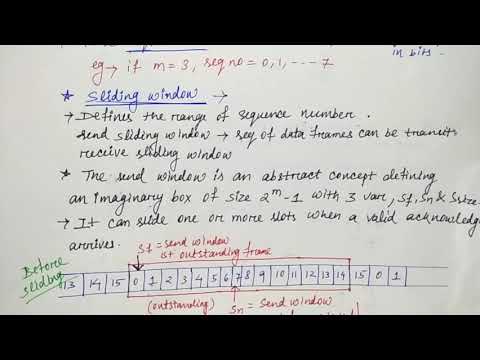 in bits.
eg → if m = 3, seq no = 0, 1, --- 7
★ Sliding window →
→ Defines the range of sequence number.
send sliding window → seq of data frames can be transit
receive sliding window
★ The send window is an abstract concept defining
an imaginary box of size 2^m-1 with 3 vare, Sf, Sn & Ssize
→ It can slide one or more slots when a valid acknowledg
arrives.
Sf = send window
1st outstanding frame
Before sliding
13 14 15 0 1 2 3 4 5 6 7 8 9 10 11 12 13 14 15 0 1
(outstanding)
Sn = Send window